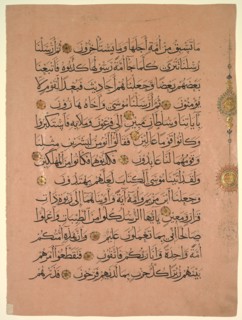 ما تسبق من أمة أجلها وما يستأخرون ثم أرسلنا
رسلنا تترى كلما جاء أمة رسولها كذبوه فأتبعنا
بعضهم بعضا وجعلناهم أحاديث فبعدا لقوم لا
يؤمنون ثم أرسلنا موسى وأخاه هارون
بآياتنا وسلطان مبين إلى فرعون وملإيه فاستكبروا
وكانوا قوما عالين فقالوا أنؤمن لبشرين مثلنا
وقومهما لنا عابدون فكذبوهما فكانوا من المهلكين
ولقد آتينا موسى الكتاب لعلهم يهتدون
وجعلنا ابن مريم وأمه آية وآويناهما إلى ربوة ذات
قرار ومعين يا أيها الرسل كلوا من الطيبات واعملوا
صالحا إني بما تعملون عليم وإن هذه أمتكم
أمة واحدة وأنا ربكم فاتقون فتقطعوا أمرهم
بينهم زبرا كل حزب بما لديهم فرحون فذرهم